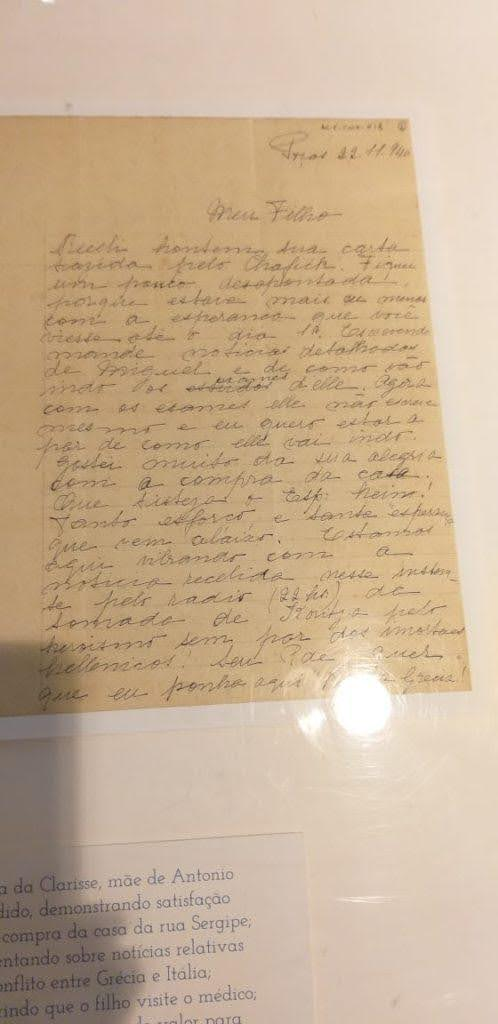 Poços 22.11.940
Meu Filho
Recebi hontem sua carta
trazida pelo Chafich. Fiquei
um pouco desapontada!
porque estava mais ou menos
com a esperança que você
viesse até o dia 1º. Escrevendo
mande noticias detalhadas
de Miguel e de como vão
indo os estudos exames d'elle. Agora
com os exames elle não escreve
mesmo e eu quero estar a
par de como elle vai indo.
Gostei muito da sua alegria
com a compra da casa.
Que o heim!
Tanto esforço e tanta esperança
que vem abaixo. Estamos
aqui vibrando com a
noticia recebida nesse instan-
te pelo radio (22 hs.) da
tomada de Koritza pelo
heroismo sem par dos imortaes
hellenicos! Seu quer
que eu ponha aqui Grecia!
a da Clarisse, mãe de Antonio
dido, demonstrando satisfação
compra da casa da rua Sergipe;
entando sobre notícias relativas
onflito entre Grécia e Itália;
rindo que o filho visite o médico;
de valor para